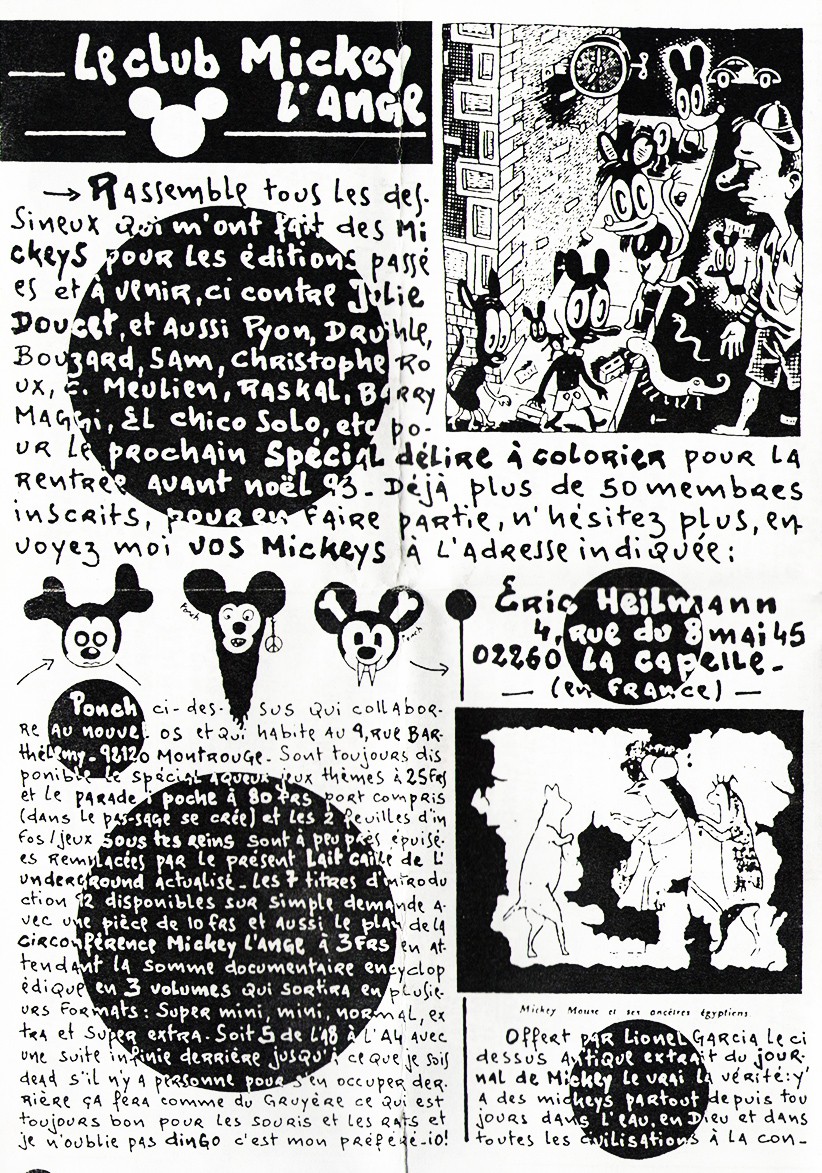 Le club Mickey
L'ANGE
→ RAssemblE tous LES des-
Sineux Qui m'ont fait des Mi
ckeys pour Les éditions passé
es et à venir, ci contre Julie
Doucet, et Aussi Pyon, Druihle,
Bouzard, SAM, Christophe Ro
ux, C. Meulien, RASKAL, BARRY
MAGGi, EL chico SoLo, etc po-
UR LE prochain Spécial délire à colorier pour LA
Rentrée avant noël 93_ Déjà plus de 50 membres
inscrits, pour en FAIRE partie, n'hésitez plus, en
voyez moi vos Mickeys à L'Adresse indiquée :
Ponch
Ponch
Éric Heilmann
4, rue du 8 mai 45
02260 LA CAPELLE_
_ (en FRANCE) _
Ponch ci-des- sus qui collabor-
RE AU nouvel os et qui habite au 9, RUE BAR-
thélémy_ 92120 Montrouge_ Sont toujours dis
ponible le spécial AQUEUX jeux thèmes à 25 FRS
et le PARADE poche à 80 FRS port compris
(dans le pas-sage se crée) et les 2 feuilles d'in
fos/jeux sous tes reins sont à peu près épuisé-
es remplacées par le présent Lait caillé de L'
underground actualisé_ Les 7 titres d'introdu
ction 12 disponibles sur simple demande a-
vec une pièce de 10 frs et aussi le plan de la
circonférence Mickey L'Ange à 3 FRS en at
tendant la somme documentaire encyclop
édique en 3 volumes qui sortira en plusie-
urs formats : Super mini, mini, normal, ex
tra et Super extra. Soit 5 de l'A8 à l'A4 avec
une suite infinie derrière jusqu'à ce que je sois
dead s'il n'y a personne pour s'en occuper der-
rière ça fera comme du Gruyère ce qui est
toujours bon pour les souris et les rats et
je n'oublie pas dinGo c'est mon préféré-io!
Mickey Mouse et ses ancêtres égyptiens
Offert par Lionel Garcia le ci
dessus Antique extrait du jour-
nal de Mickey le vrai la vérité: y'
A des mickeys partout depuis tou
jours dans l'eau, en Dieu et dans
toutes les civilisations à la con_